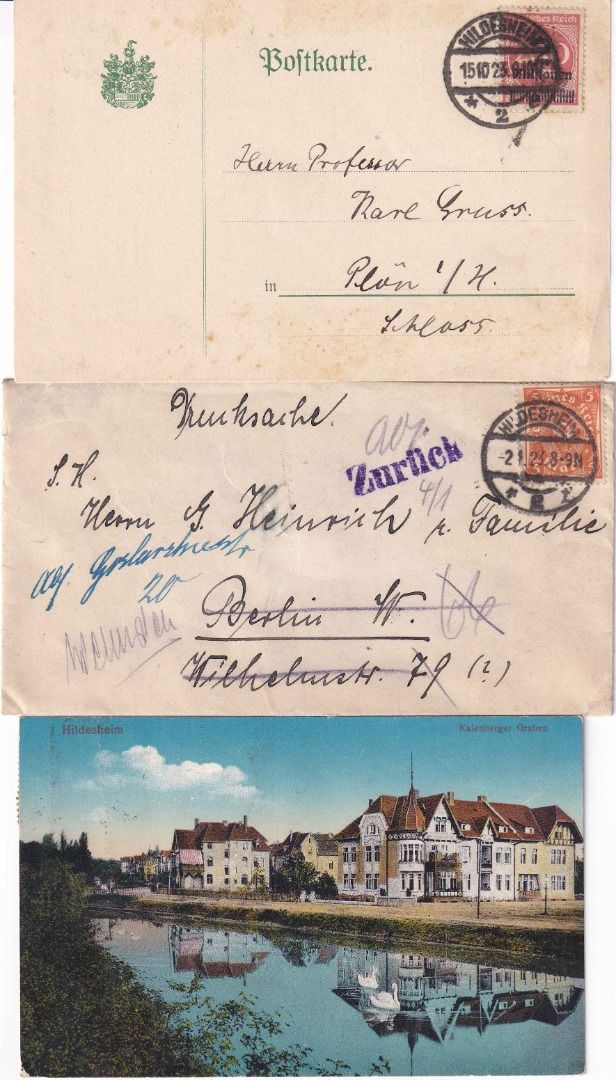 Postkarte.
Deutsches Reich
HILDESHEIM
15 10 23. 8-9 N
2
Herrn Professor
Karl Gruss.
in Plön i/H.
Schloss.
Drucksache.
Zurück
4/1
HILDESHEIM
-2 1. 23. 8-9N
5
S. H.
Herrn G. Heinrich u. Familie
20
Berlin W. 66
Wilhelmstr. 79 (?)
Hildesheim
Kalenberger Graben